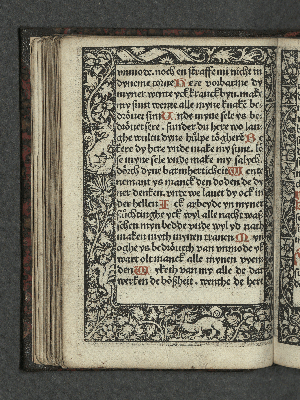 vnmode. noch en straffe mi nicht in
dyneme torne Here vorbarme dy
myner wente yck kranck byn. make
my sunt wente alle myne knake be-
drövet sint Unde myne sele ys be-
drövet sere. sunder du here wo lan-
ghe wultu dyne hülpe töghere Be
kere dy here vnde make my sunt. lö
se myne sele vnde make my salych.
dorch dyne barmherticheit Wente
nemant ys manck den doden de dy-
ner denken. vnde we lauet dy ock in
der hellen Ick arbeyde yn myne
süchtinghe yck wyl alle nacht was-
schen myn bedde vnde wyl yd nath
maken myth mynen tranen Myn
oghe ys bedröueth van vnmode yk
wart olt manck alle mynen vyen-
den Wyketh van my alle de dar
werken de bößheit. wenthe de here